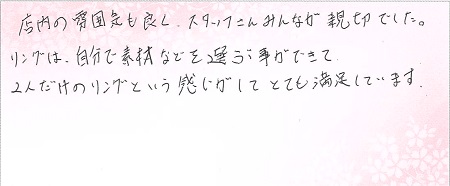 店内の雰囲気も良く、スタッフさんみんなが親切でした。
リングは、自分で素材などを選ぶ事ができて
2人だけのリングという感じがしてとても満足しています。